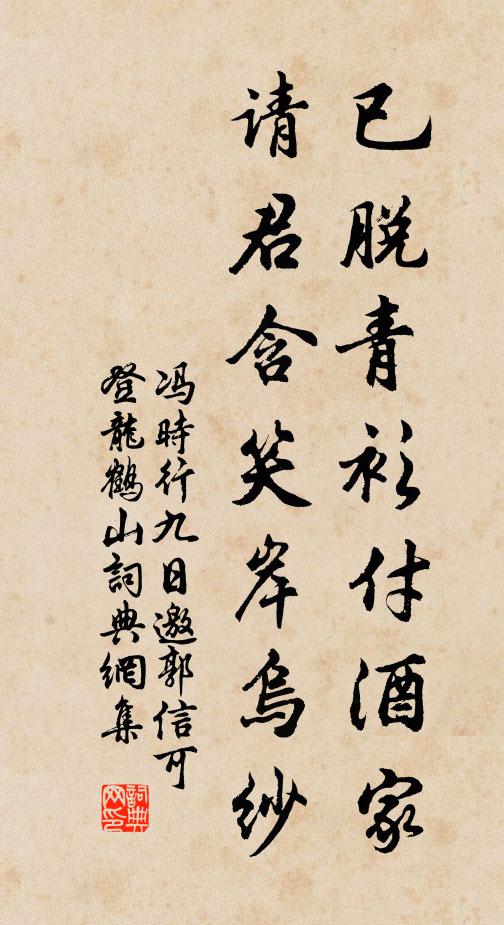 已脱青衫付酒家
请君含笑岸乌纱
冯時行九日邀郭信可
登龍鶴山詞典網集
詞典网印